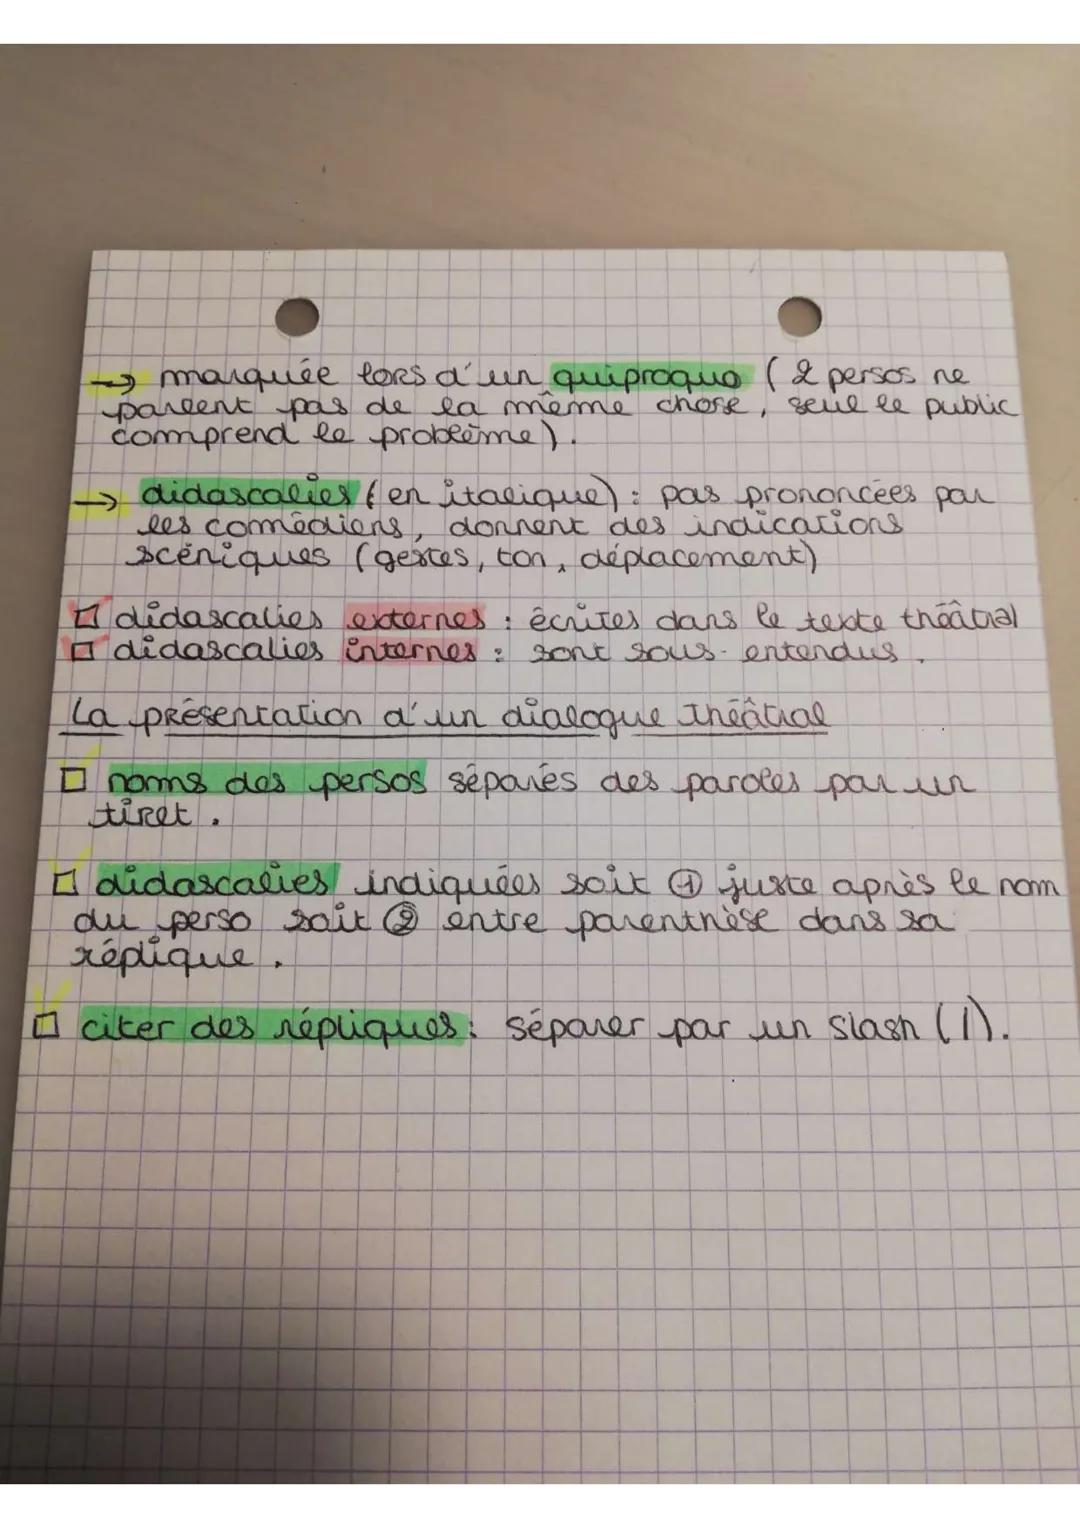 → marquée lors d'un quiproquo ( 2 persos ne
parlent pas de la même chose, seul le public
comprend le problème).
→ didascalies (en italique) : pas prononcées par
les comédiens, donnent des indications
scéniques (gestes, ton, déplacement)
□ didascalies externes : écrites dans le texte théâtral
□ didascalies internes : sont sous-entendus.
La présentation d'un dialogue théâtral
□ noms des persos séparés des paroles par un
tiret.
□ didascalies indiquées soit ① juste après le nom
du perso soit ② entre parenthèse dans sa
réplique.
□ citer des répliques : séparer par un slash (/).